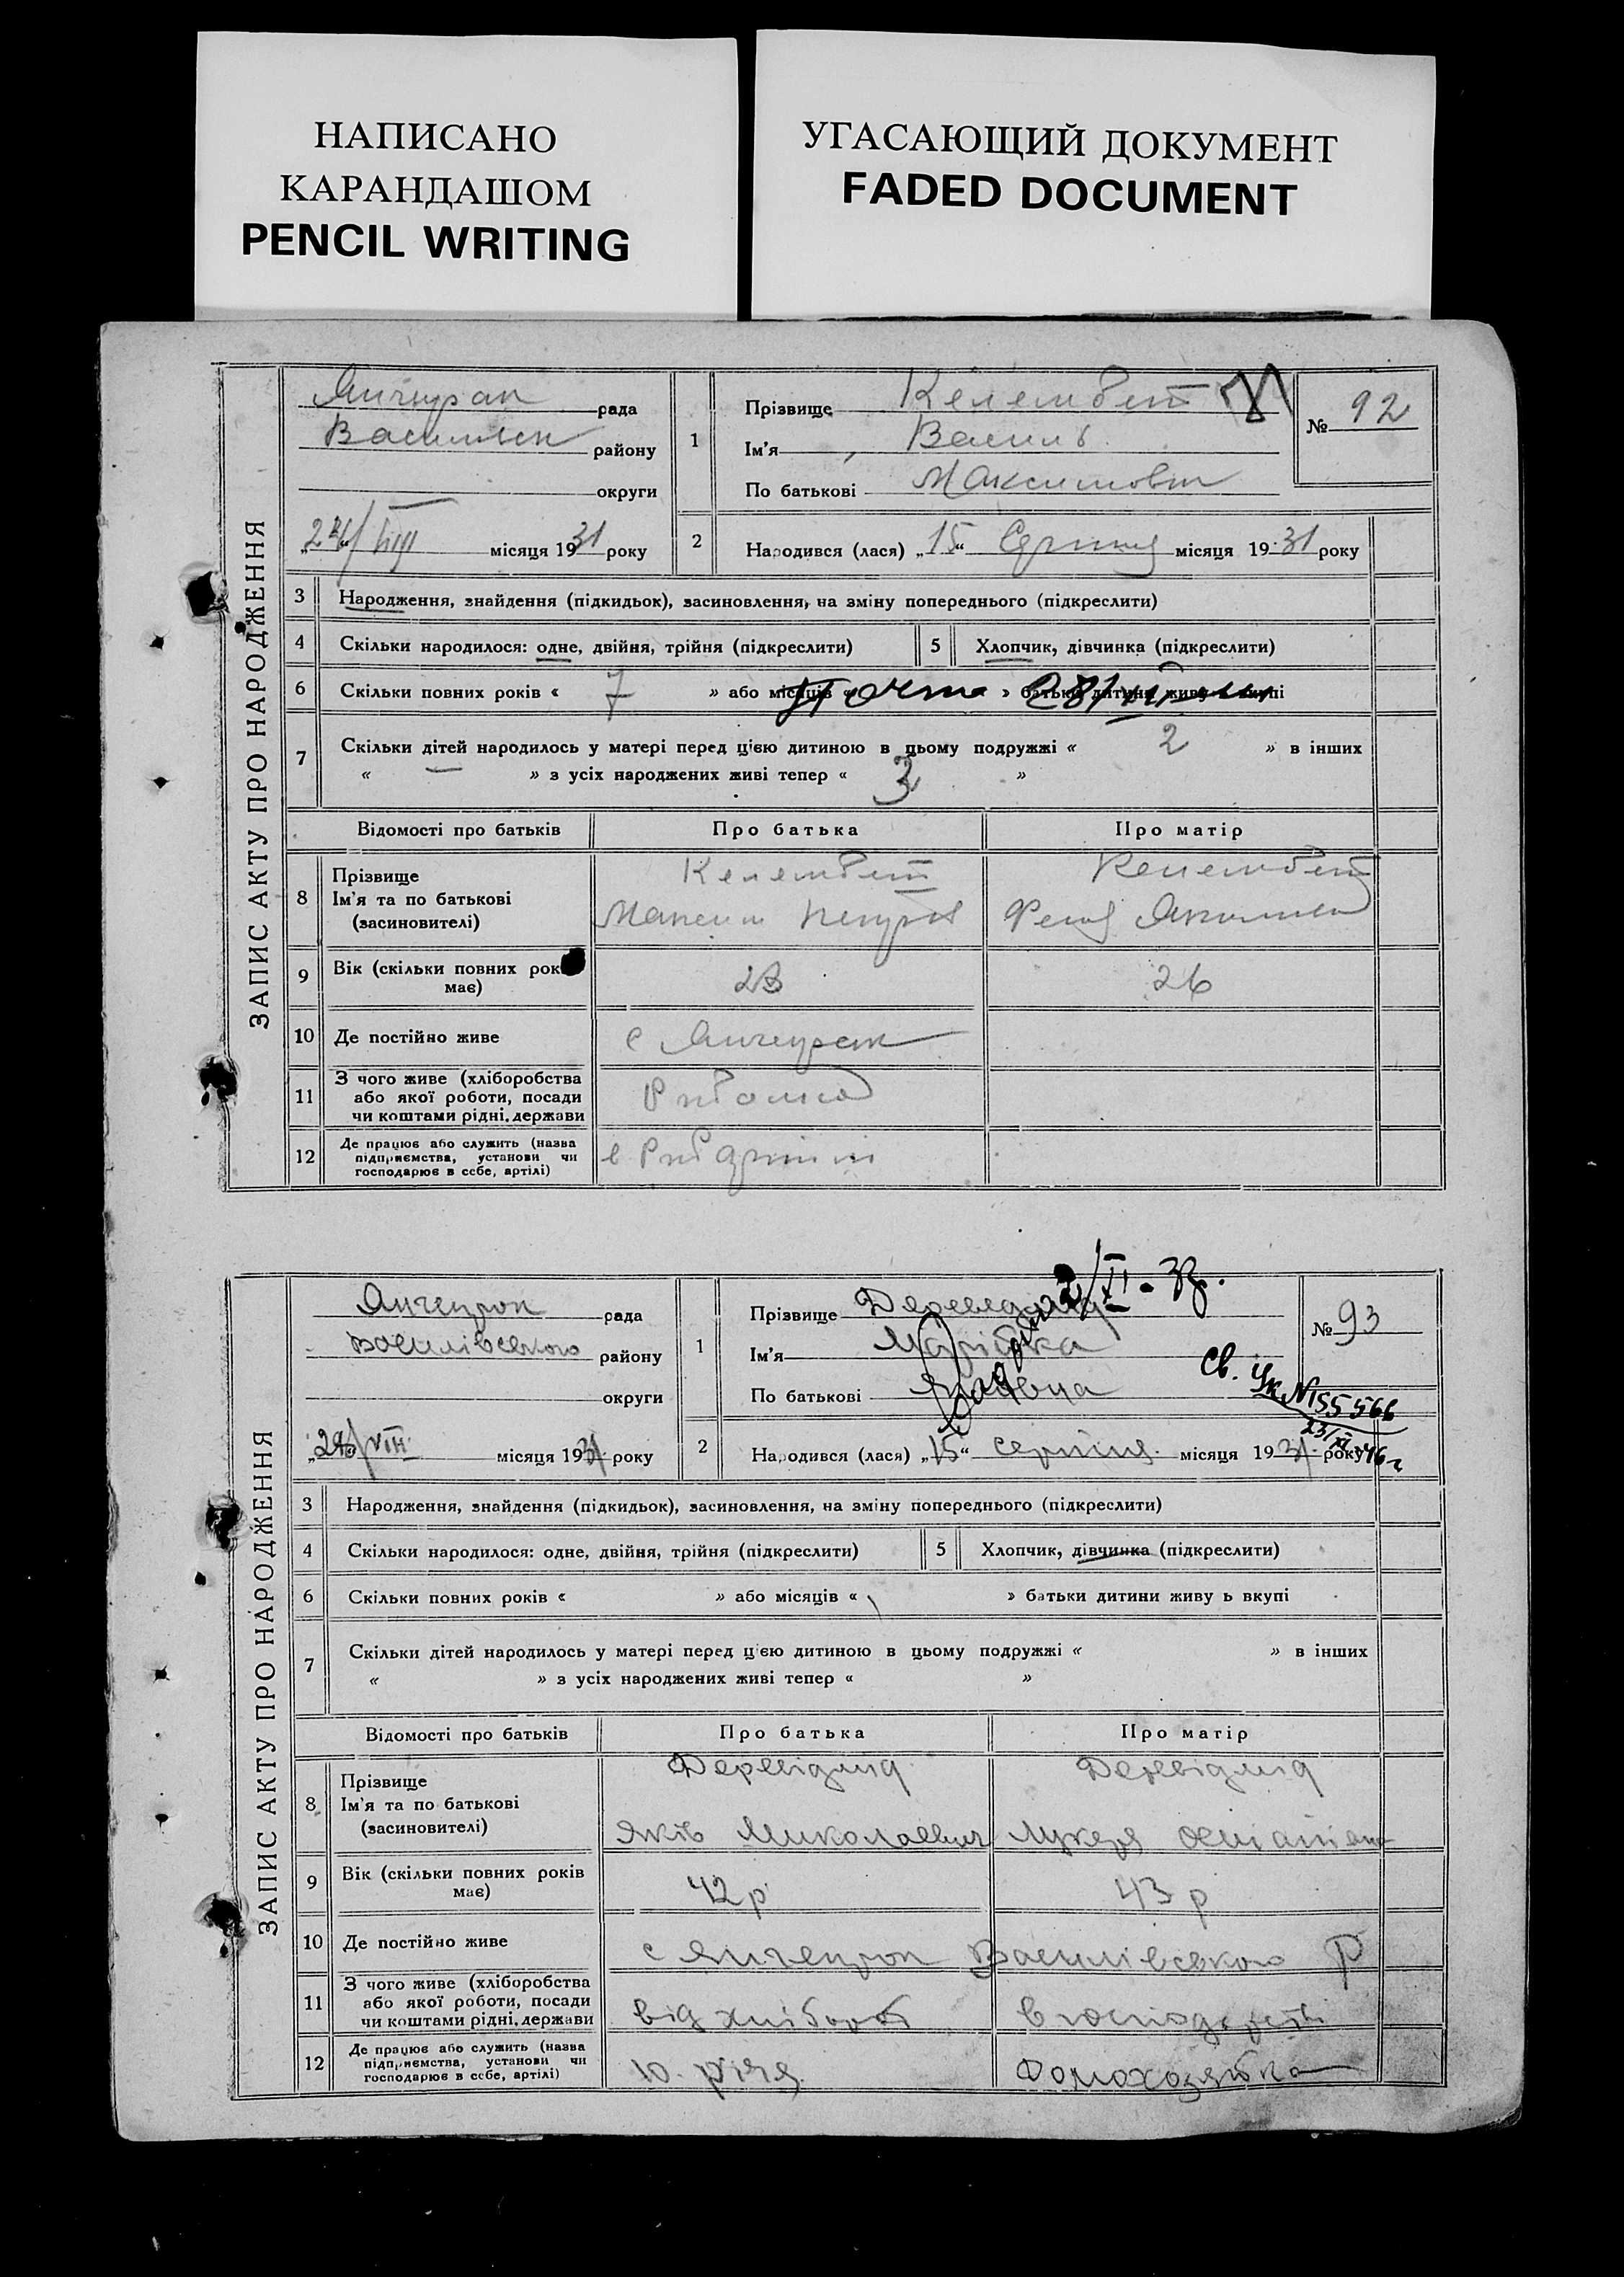 НАПИСАНО
КАРАНДАШОМ
PENCIL WRITING
УГАСАЮЩИЙ ДОКУМЕНТ
FADED DOCUMENT
ЗАПИС АКТУ ПРО НАРОДЖЕННЯ
Янчекрак рада
Васильевск району
округи
місяця 1931 року
1
Прізвище Келембет
Ім'я Василь
По батькові Максимович
№ 92
2 Народився (лася) „15“ Серпня місяця 1931 року
3 Народження, знайдення (підкидьок), засиновлення, на зміну попереднього (підкреслити)
4 Скільки народилося: одне, двійня, трійня (підкреслити)
5 Хлопчик, дівчинка (підкреслити)
6 Скільки повних років « 7 » або місяців « » батьки дитини живуть вкупі
7 Скільки дітей народилось у матері перед цією дитиною в цьому подружжі « 2 » в інших
« — » з усіх народжених живі тепер « 3 »
Відомості про батьків Про батька Про матір
8 Прізвище
Ім'я та по батькові
(засиновителі)
Келембет
Максим Петров
Келембет
9 Вік (скільки повних років
має)
26
10 Де постійно живе
с Янчекрак
11 З чого живе (хліборобства
або якої роботи, посади
чи коштами рідні, держави
12 Де працює або служить (назва
підприємства, установи чи
господарює в себе, артілі)
ЗАПИС АКТУ ПРО НАРОДЖЕННЯ
Янчекрак рада
Василівського району
округи
місяця 1931 року
1
2/XI-37.
Прізвище
Ім'я
По батькові Яківна
№ 93
Св. Ук №155566
23/XI 46 г
2 Народився (лася) „15“ серпня місяця 1931 року
3 Народження, знайдення (підкидьок), засиновлення, на зміну попереднього (підкреслити)
4 Скільки народилося: одне, двійня, трійня (підкреслити)
5 Хлопчик, дівчинка (підкреслити)
6 Скільки повних років « » або місяців « » батьки дитини живу ь вкупі
7 Скільки дітей народилось у матері перед цією дитиною в цьому подружжі « » в інших
« » з усіх народжених живі тепер « »
Відомості про батьків Про батька Про матір
8 Прізвище
Ім'я та по батькові
(засиновителі)
Яків Миколаевич
Лукеря
9 Вік (скільки повних років
має)
42 р
43 р
10 Де постійно живе
с Янчекрак Василівського Р
11 З чого живе (хліборобства
або якої роботи, посади
чи коштами рідні, держави
від хлібороб
в господарстві
12 Де працює або служить (назва
підприємства, установи чи
господарює в себе, артілі)
Домохозяйка